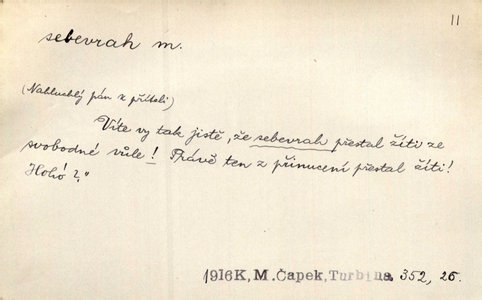 11
sebevrah m.
(Nahluchlý pán k příteli)
Víte vy tak jistě, že sebevrah přestal žíti ze
svobodné vůle! Právě ten z přinucení přestal žíti!
Hohó?"
1916K, M. Čapek, Turbina, 352, 26.